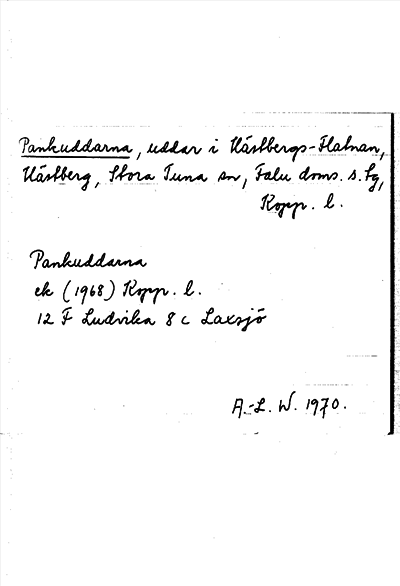 Pankuddarna, uddar i Håstbergs-Flatnan,
Håstberg, Stora Tuna sn, Falu doms. s. fg,
Kopp. l.
Pankuddarna
ek (1968) Kopp. l.
12 F Ludvika 8 c Laxsjö
A.-L. W. 1970.